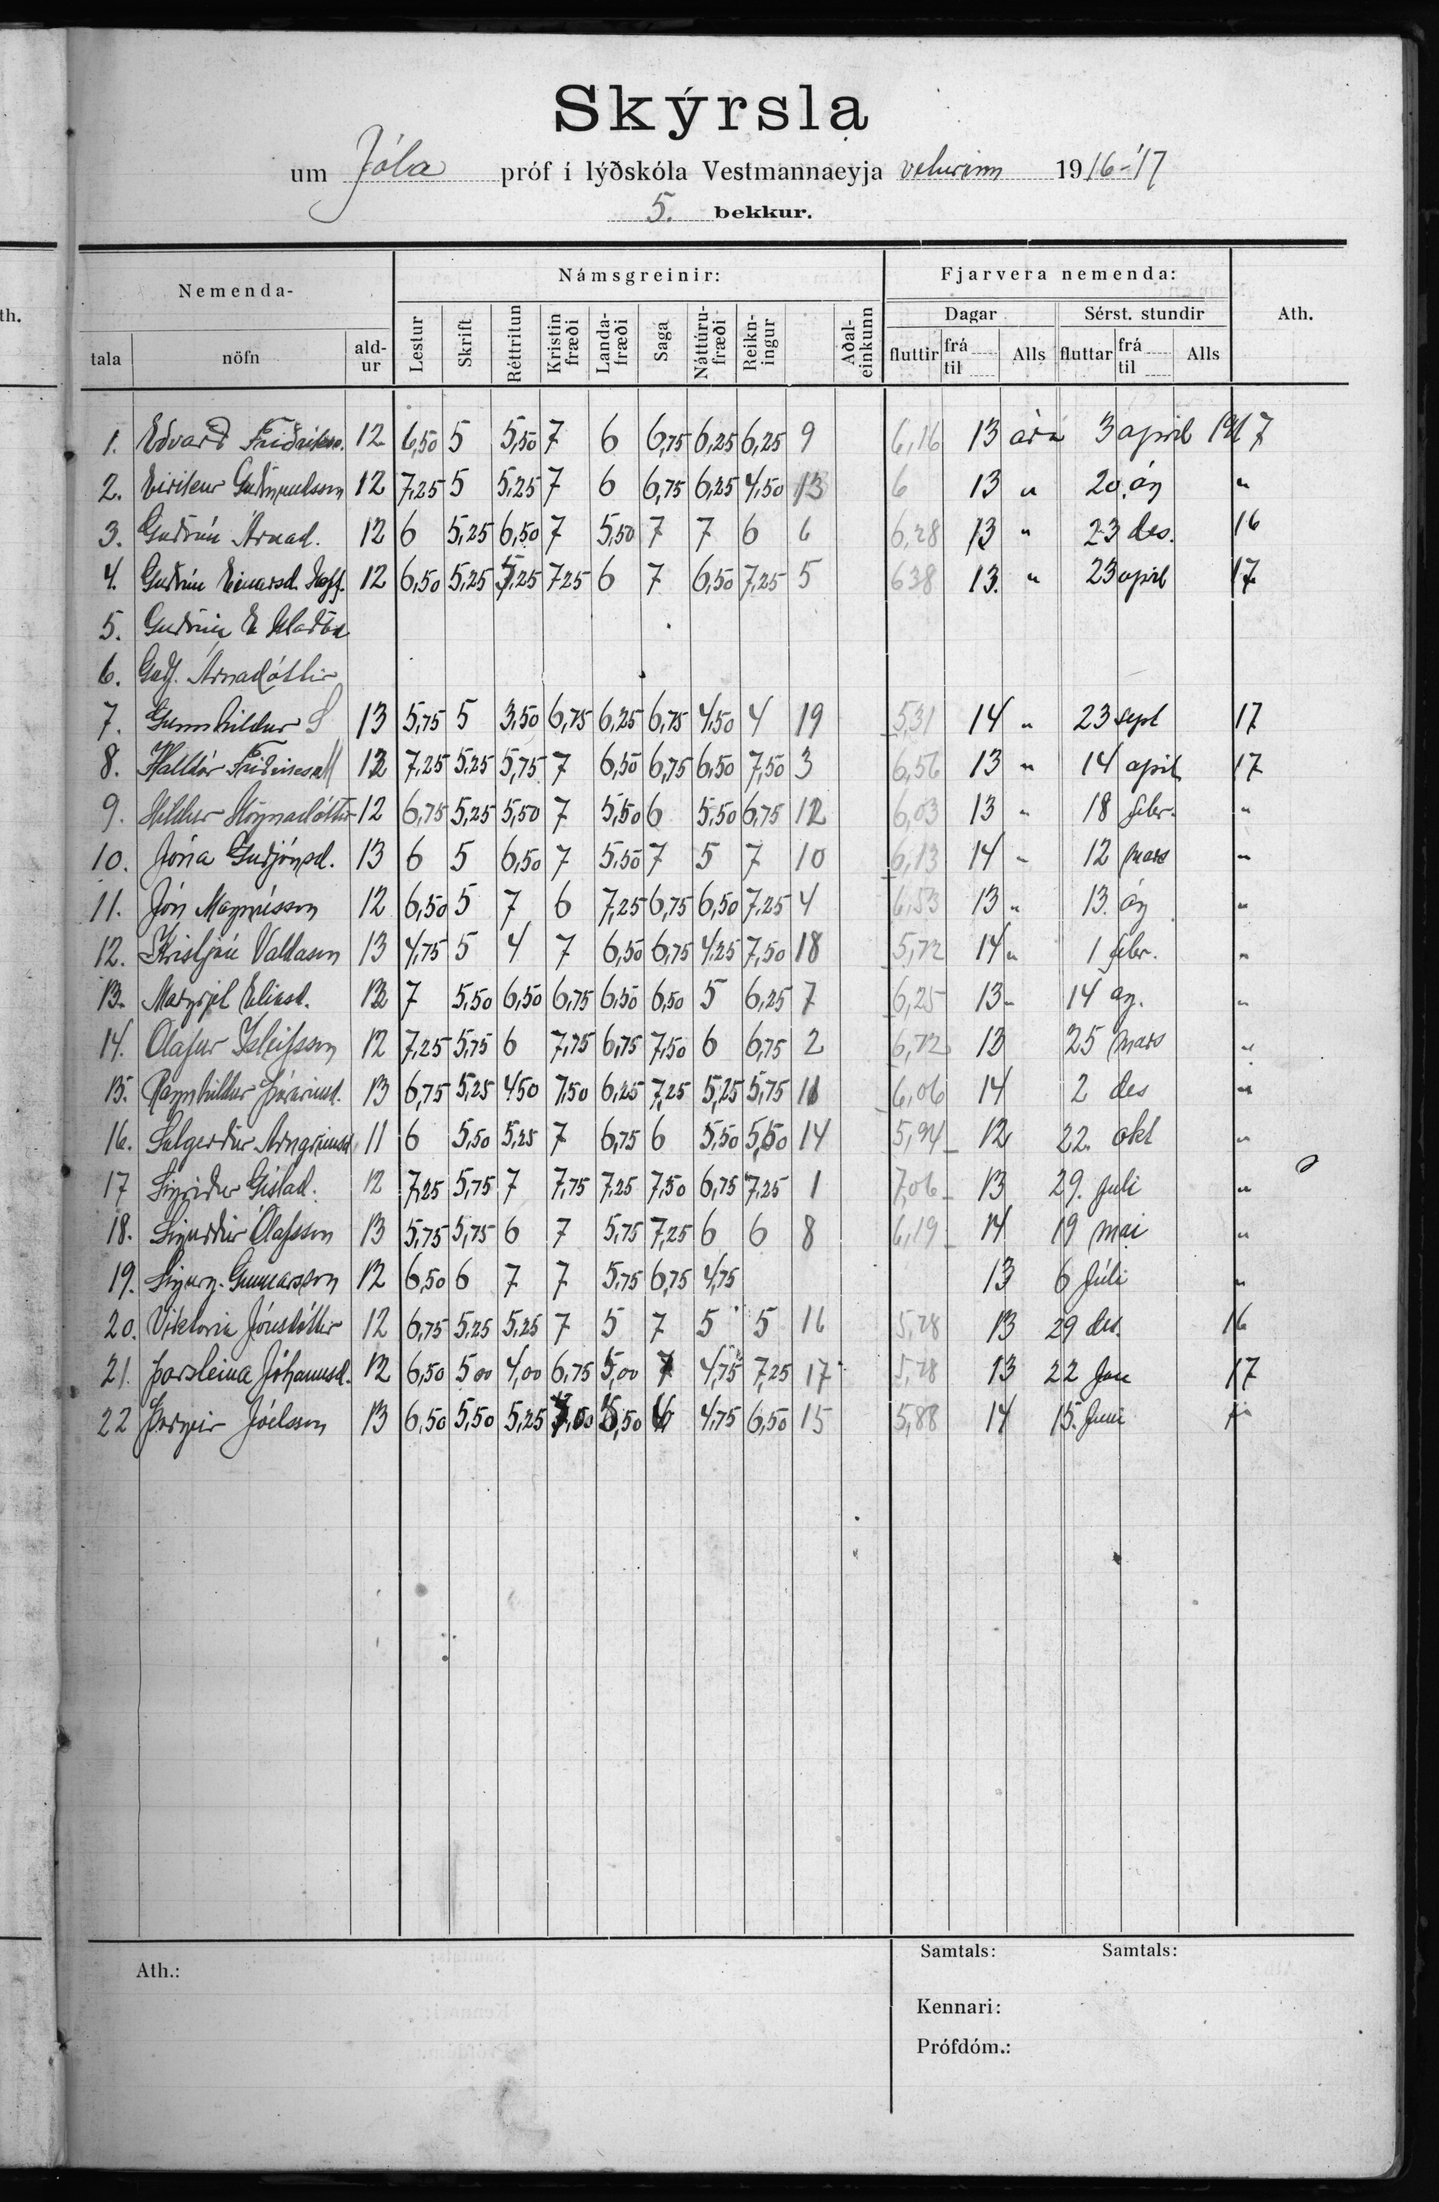 Skýrsla
um Jóla próf í lýðskóla Vestmannaeyja veturinn 1916-'17
5. bekkur.
Nemenda-
Námsgreinir:
Fjarvera nemenda:
Ath.
th.
Dagar
Sérst. stundir
tala nöfn ald-ur Lestur Skrift Réttritun Kristin fræði Landa-fræði Saga Náttúru-fræði Reikn-ingur Aðal-einkunn fluttir frá til Alls fluttar frá til Alls
1. Edvarð Friðrikss. 12 6,50 5 5,50 7 6 6,75 6,25 6,25 9 6,16 13 ára 3 april 1917
2. Eirikur Guðmundsson 12 7,25 5 5,25 7 6 6,75 6,25 4,50 13 6 13 " 20. ág "
3. Guðrún Árnad. 12 6 5,25 6,50 7 5,50 7 7 6 6 6,28 13 " 23 des. 16
4. Guðrún Einarsd. 12 6,50 5,25 5,25 7,25 6 7 6,50 7,25 5 6,38 13. " 23 april 17
5. Guðrún E
6. Guðj. Árnadóttir
7. Gunnhildur S 13 5,75 5 3,50 6,75 6,25 6,75 4,50 4 19 5,31 14 " 23 sept 17
8. Halldór 12 7,25 5,25 5,75 7 6,50 6,75 6,50 7,50 3 6,56 13 " 14 april 17
9. Hildur 12 6,75 5,25 5,50 7 5,50 6 5,50 6,75 12 6,03 13 " 18 febr. "
10. Jóna Guðjónsd. 13 6 5 6,50 7 5,50 7 5 7 10 6,13 14 " 12 mars "
11. Jón Magnússon 12 6,50 5 7 6 7,25 6,75 6,50 7,25 4 6,53 13 " 13. ág "
12. Kristján Valdason 13 4,75 5 4 7 6,50 6,75 4,25 7,50 18 5,72 14 " 1 febr. "
13. Margrét Elíasd. 12 7 5,50 6,50 6,75 6,50 6,50 5 6,25 7 6,25 13 " 14 ág. "
14. Olafur 12 7,25 5,75 6 7,75 6,75 7,50 6 6,75 2 6,72 13 25 mars "
15. Ragnhildur Þórarinsd. 13 6,75 5,25 4,50 7,50 6,25 7,25 5,25 5,75 11 6,06 14 2 des "
16. Salgerður Arngrímsd. 11 6 5,50 5,25 7 6,75 6 5,50 5,50 14 5,94 12 22. okt "
17 Sigríður Gíslad. 12 7,25 5,75 7 7,75 7,25 7,50 6,75 7,25 1 7,06 13 29. júlí "
18. Sigurður Ólafsson 13 5,75 5,75 6 7 5,75 7,25 6 6 8 6,19 14 19 mai "
19. Sigurg. Gunnarsson 12 6,50 6 7 7 5,75 6,75 4,75 13 6 Júlí "
20. Viktoría Jónsdóttir 12 6,75 5,25 5,25 7 5 7 5 5 16 5,78 13 29 des. 16
21. Þorsteina Jóhannsd. 12 6,50 5,00 4,00 6,75 5,00 7 4,75 7,25 17 5,78 13 22 Jan 17
22 Þorgeir Jóelsson 13 6,50 5,50 5,25 7,00 5,50 6 4,75 6,50 15 5,88 14 15. Juni "
Samtals: Samtals:
Ath.:
Kennari:
Prófdóm.: